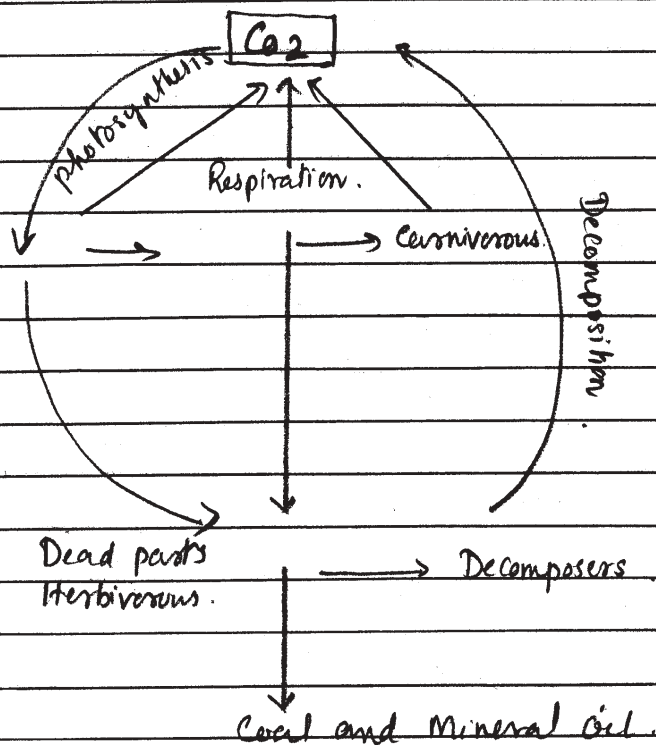 Co2
Photosynthesis
Respiration.
Carniverous.
Decomposition.
Dead parts
Herbiverous.
Decomposers
Coal and Mineral Oil.